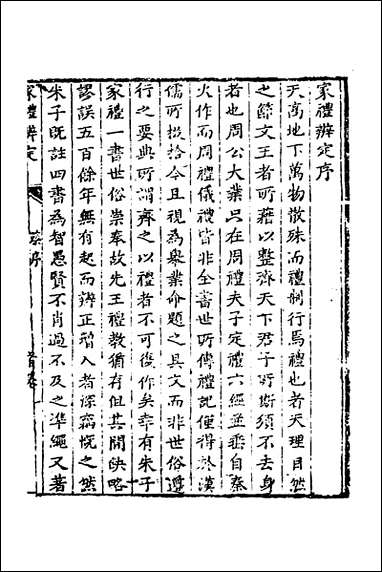 家禮辨定序
天高地下萬物散殊而禮制行焉禮也者天理自然
之節文王者所藉以整齊天下君子所斯須不去身
者也周公大業只在周禮夫子定禮六經並垂自秦
火作而周禮儀禮皆非全書世所傳禮記僅得於漢
儒所掇拾今且視為舉業命題之具文而非世俗遵
行之要典所謂齊之以禮者不可復作矣幸有朱子
家禮一書世俗崇奉故先王禮教猶存但其間缺略
謬誤五百餘年無有起而辨正增入者深竊慨之然
朱子既註四書為智愚賢不肖過不及之準繩又著
家禮辨定
序